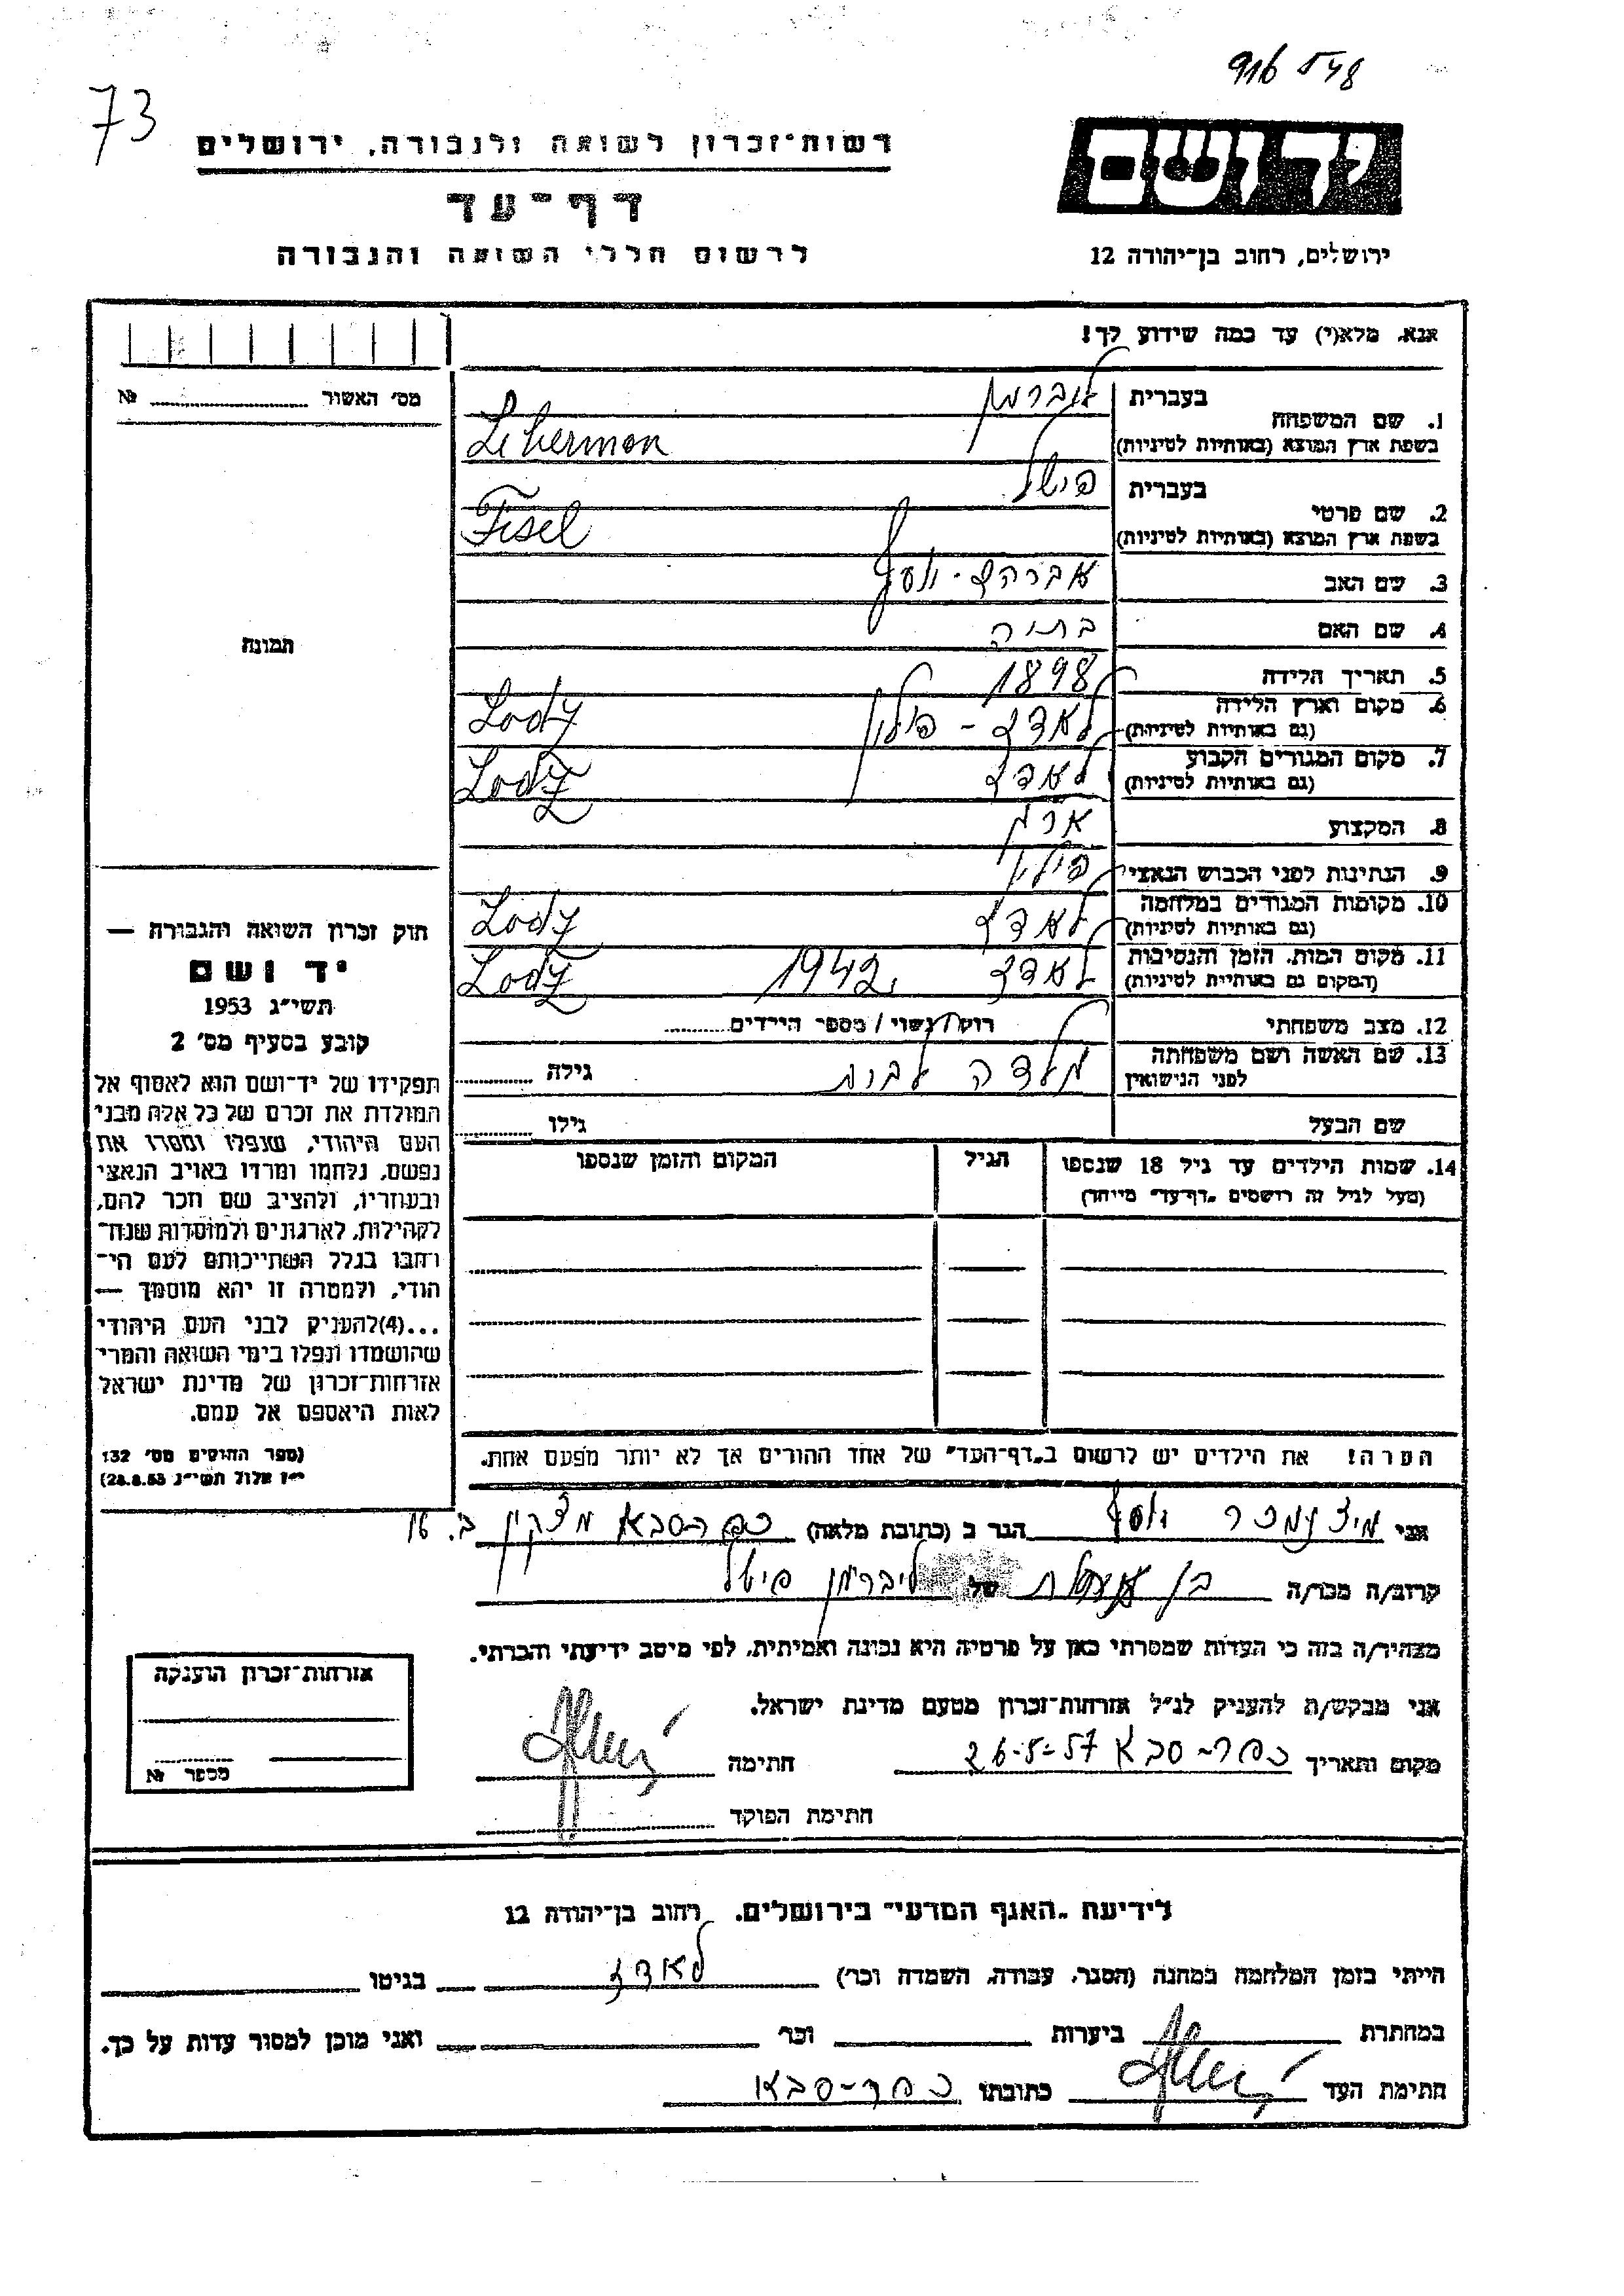 916548
73
יד ושם
רשות־זכרון לשואה ולגבורה, ירושלים
דף־עד
לרשום חללי השואה והגבורה
ירושלים, רחוב בן־יהודה 12
אנא, מלא(י) עד כמה שידוע לך!
מס׳ האשור № ........
תמונה
1. שם המשפחה
בעברית ליברמן
בשפת ארץ המוצא (באותיות לטיניות) Liberman
2. שם פרטי
בעברית פישל
בשפת ארץ המוצא (באותיות לטיניות) Fisel
3. שם האב אברהם־יוסף
4. שם האם בתיה
5. תאריך הלידה 1898
6. מקום וארץ הלידה לאדז - פולין Lodz
(גם באותיות לטיניות)
7. מקום המגורים הקבוע לאדז Lodz
(גם באותיות לטיניות)
8. המקצוע אורג
9. הנתינות לפני הכבוש הנאצי פולין
10. מקומות המגורים במלחמה לאדז Lodz
(גם באותיות לטיניות)
11. מקום המות, הזמן והנסיבות לאדז, 1942 Lodz
(המקום גם באותיות לטיניות)
12. מצב משפחתי רוק/נשוי/מספר הילדים........
13. שם האשה ושם משפחתה
לפני הנישואין
גילה ........
שם הבעל גילו ........
14. שמות הילדים עד גיל 18 שנספו הגיל המקום והזמן שנספו
(מעל לגיל זה רושמים „דף־עד״ מיוחד)
הערה! את הילדים יש לרשום ב„דף־העד״ של אחד ההורים אך לא יותר מפעם אחת.
חוק זכרון השואה והגבורה —
יד ושם
תשי״ג 1953
קובע בסעיף מס׳ 2
תפקידו של יד־ושם הוא לאסוף אל
המולדת את זכרם של כל אלה מבני
העם היהודי, שנפלו ומסרו את
נפשם, נלחמו ומרדו באויב הנאצי
ובעוזריו, ולהציב שם וזכר להם,
לקהילות, לארגונים ולמוסדות שנח־
רבו בגלל השתייכותם לעם הי־
הודי, ולמטרה זו יהא מוסמך —
...(4)להעניק לבני העם היהודי
שהושמדו ונפלו בימי השואה והמרי
אזרחות־זכרון של מדינת ישראל
לאות היאספם אל עמם.
(ספר החוקים מס׳ 132
י״ז אלול תשי״ג 28.8.53)
אני יוסף הגר ב (כתובת מלאה) כפר־סבא
קרוב/ה מכר/ה בן של ליברמן פישל
מצהיר/ה בזה כי העדות שמסרתי כאן על פרטיה היא נכונה ואמיתית, לפי מיטב ידיעתי והכרתי.
אני מבקש/ת להעניק לנ״ל אזרחות־זכרון מטעם מדינת ישראל.
מקום ותאריך כפר־סבא 26-5-57 חתימה
חתימת הפוקד
אזרחות־זכרון הוענקה
מספר №
לידיעת „האגף המדעי״ בירושלים, רחוב בן־יהודה 12
הייתי בזמן המלחמה במחנה (הסגר, עבודה, השמדה וכו׳) לאדז בגיטו
במחתרת ביערות וכו׳ ואני מוכן למסור עדות על כך.
חתימת העד כתובתו כפר־סבא